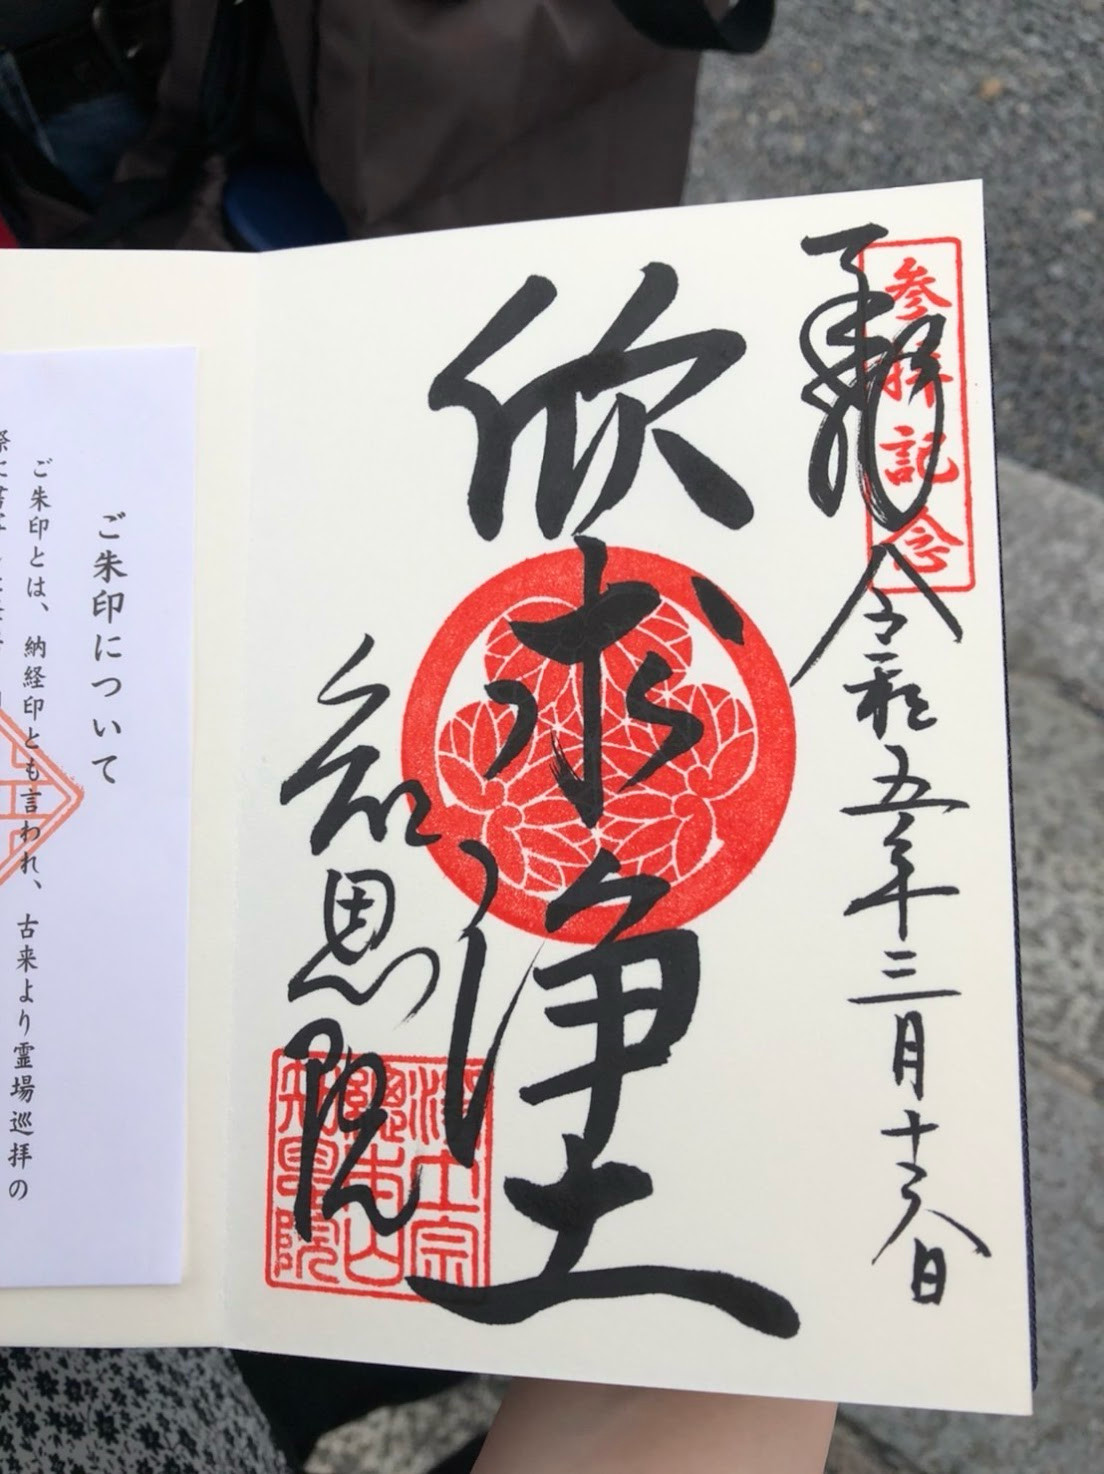 参拝記念
奉拝
令和五年三月十六日
欣求浄土
知恩院
浄土宗
總本山
知恩院
ご朱印について
ご朱印とは、納経印とも言われ、古来より霊場巡拝の